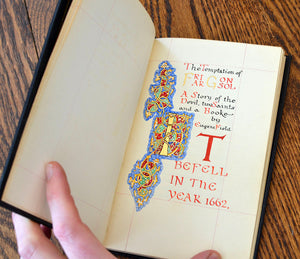 The Temptation of
FRIAR GONSOL.
A Story of the
Devil, two Saints
and a Booke
by
Eugene Field.
IT
BEFELL
IN THE
YEAR 1662.